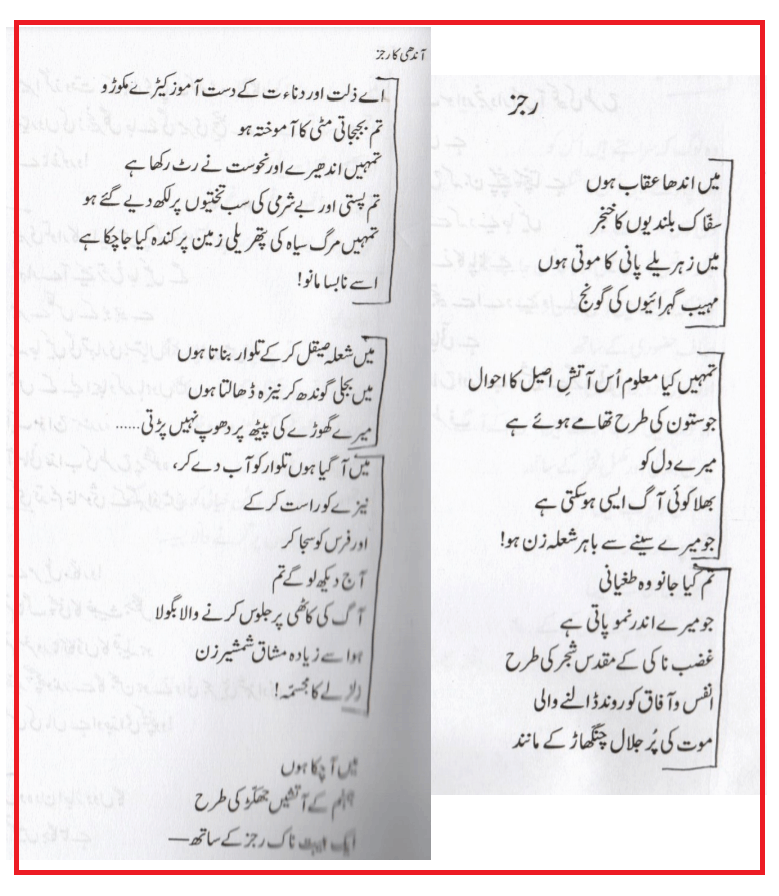 رجز
میں اندھا عقاب ہوں
سفّاک بلندیوں کا خنجر
میں زہریلے پانی کا موتی ہوں
مہیب گہرائیوں کی گونج
تمہیں کیا معلوم اُس آتشِ اصیل کا احوال
جو ستون کی طرح تھامے ہوئے ہے
میرے دل کو
بھلا کوئی آگ ایسی ہو سکتی ہے
جو میرے سینے سے باہر شعلہ زن ہو!
تم کیا جانو وہ طغیانی
جو میرے اندر نمو پاتی ہے
غضب ناکی کے مقدس شجر کی طرح
انفس و آفاق کو روند ڈالنے والی
موت کی پُر جلال چنگھاڑ کے مانند
آندھی کا رجز
اے ذلت اور دناءت کے دست آموز کیڑے مکوڑو
تم بجبجاتی مٹی کا آموختہ ہو
تمہیں اندھیرے اور نحوست نے رٹ رکھا ہے
تم پستی اور بے شرمی کی سب تختیوں پر لکھ دیے گئے ہو
تمہیں مرگ سیاہ کی پتھریلی زمین پر کندہ کیا جا چکا ہے
اسے نابسا مانو!
میں شعلہ صیقل کر کے تلوار بناتا ہوں
میں بجلی گوندھ کر نیزہ ڈھالتا ہوں
میرے گھوڑے کی پیٹھ پر دھوپ نہیں پڑتی......
میں آ گیا ہوں تلوار کو آب دے کر،
نیزے کو راست کر کے
اور فرس کو سجا کر
آج دیکھ لو گے تم
آگ کی کاٹھی پر جلوس کرنے والا بگولا
ہوا سے زیادہ مشاق شمشیر زن
زلزلے کا مجسمہ!
میں آ چکا ہوں
جہنم کے آتشیں جھکّڑ کی طرح
ایک ہیبت ناک رجز کے ساتھ—